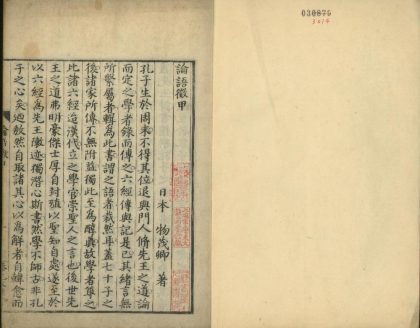 論語徵甲
日本 物茂卿 著
孔子生於周末不得其位退與門人脩先王之道論
而定之學者錄而傳之六經傳與記是已其緒言無
所繫屬者輯為此書謂之語者裁然耳蓋七十子之
後諸家所傳不無附益獨此至為醇真故學者尊之
比諸六經迨漢代立之學官崇聖人之言也後世先
王之道弗明豪傑士厚自封殖以聖知自處遂至於
以六經為先王陳迹獨潛心斯書然學不師古非孔
子之心矣迺敖然自取諸其心以為解者自韓愈而
030876
3014